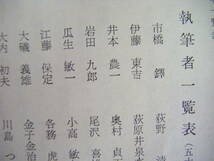 執筆者一覧表(五十
市橋 鐸
伊藤 東吉
井本 農一
岩田 九郎
瓜生 敏一
江藤 保定
大磯 義雄
大内 初夫
荻野 清
荻原井泉
奥村
尾沢 喜
小高 敏
各務 虎
金子金治
川島 つ